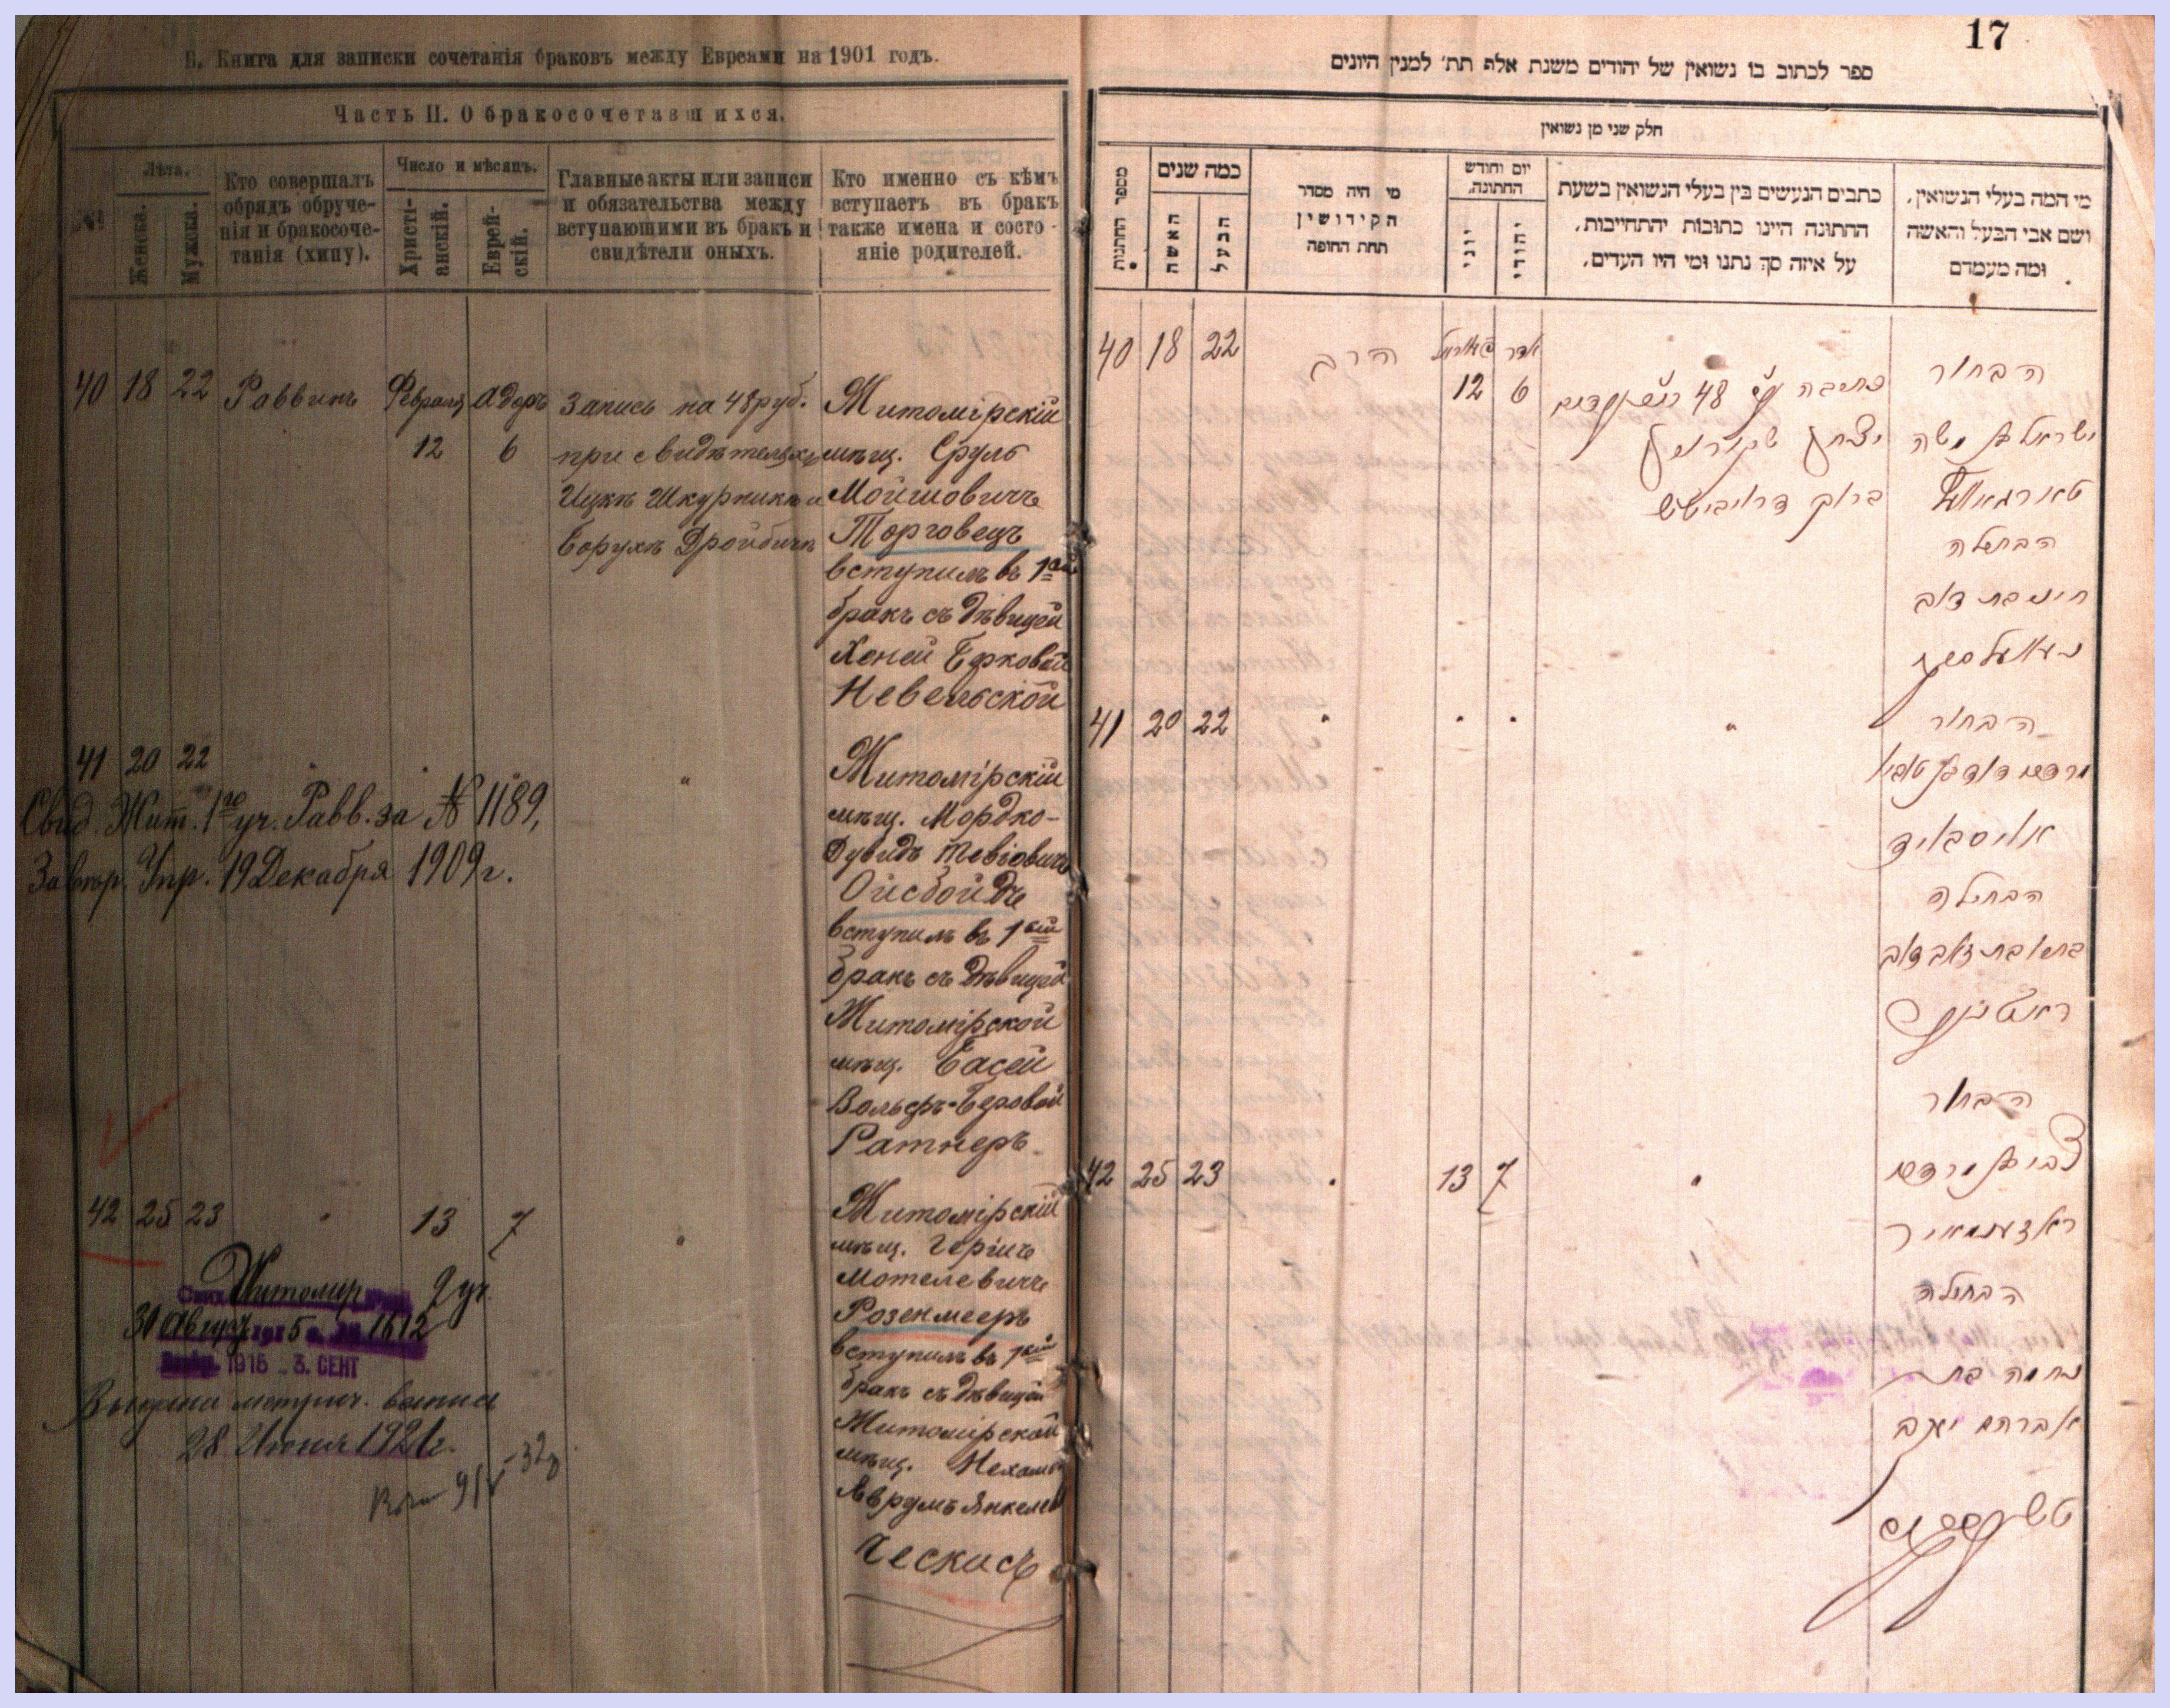 Б. Книга для записки сочетанія браковъ между Евреями на 1901 годъ.
Часть II. О бракосочетавшихся.
№
Лѣта.
Женска.
Мужска.
Кто совершалъ
обрядъ обруче-
нія и бракосоче-
танія (хипу).
Число и мѣсяцъ.
Христі-
анскій.
Еврей-
скій.
Главные акты или записи
и обязательства между
вступающими въ бракъ и
свидѣтели оныхъ.
Кто именно съ кѣмъ
вступаетъ въ бракъ
также имена и состо-
яніе родителей.
40 18 22 Раввинъ Февраля Адоръ Запись на 48 руб. Житомірскій
12 6 при свидѣтеляхъ мѣщ. Сруль
Ицкѣ Шкурникѣ и Мойшовичъ
Борухѣ Дройбичѣ Торговецъ
вступилъ въ 1ый
бракъ съ дѣвицей
Хеней Берковой
Невельской
41 20 22 " Житомірскій
мѣщ. Мордко-
Дувидъ Тевіовичъ
Ойсбойдъ
вступилъ въ 1ый
бракъ съ дѣвицей
Житомірской
мѣщ. Басей
Вольфъ-Беровой
Ратнеръ
Свид. Жит. 1го уч. Равв. за № 1189,
Завѣр. Упр. 19 Декабря 1909 г.
42 25 23 " 13 7 " Житомірскій
мѣщ. Гершъ
Мотелевичъ
Розенмееръ
вступилъ въ 1ый
бракъ съ дѣвицей
Житомірской
мѣщ. Нехамой
Аврумъ Янкелев
Ческисъ
Житомир 2 уч.
31 Август 1915 № 1612
1915 - 3. СЕНТ
Выдана метрич. выпись
28 Июня 1921 г.
17
ספר לכתוב בו נשואין של יהודים משנת אלף תת׳ למנין היונים
חלק שני מן נשואין
מספר החתונות
כמה שנים
האשה
הבעל
מי היה מסדר
הקידושין
תחת החופה
יום וחודש
החתונה.
יוני
יהודי
כתבים הנעשים בין בעלי הנשואין בשעת
החתונה היינו כתובות יהתחייבות,
על איזה סך נתנו ומי היו העדים.
מי המה בעלי הנשואין,
ושם אבי הבעל והאשה
ומה מעמדם
40 18 22 הרב פעווראל אדר
12 6
כתיבה ע״ס 48
יצחק שקורניק
ברוך דרויביטש
הבחור
ישראל בן משה
טארגאוועץ
הבתולה
חינה בת דוב
נעוועלסקי
41 20 22 " " " " הבחור
מרדכי דוד בן טוביה
אויסבויד
הבתולה
בתי׳ בת זאב דוב
ראטנער
הבחור
42 25 23 " 13 7 " צבי בן מרדכי
ראזענמאיר
הבתולה
נחמה בת
אברהם יעקב
טשעסקיס